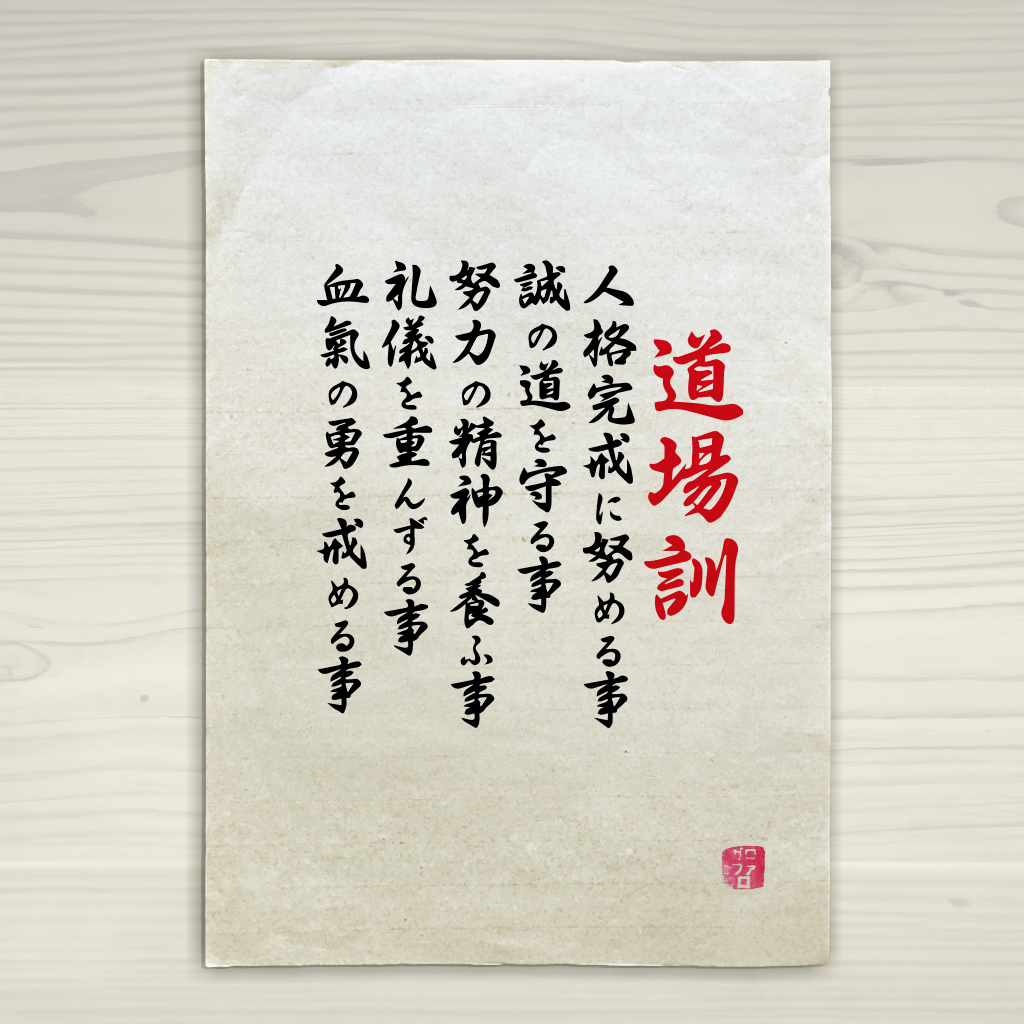 道場訓
人格完戒に努める事
誠の道を守る事
努力の精神を養ふ事
礼儀を重んずる事
血氣の勇を戒める事